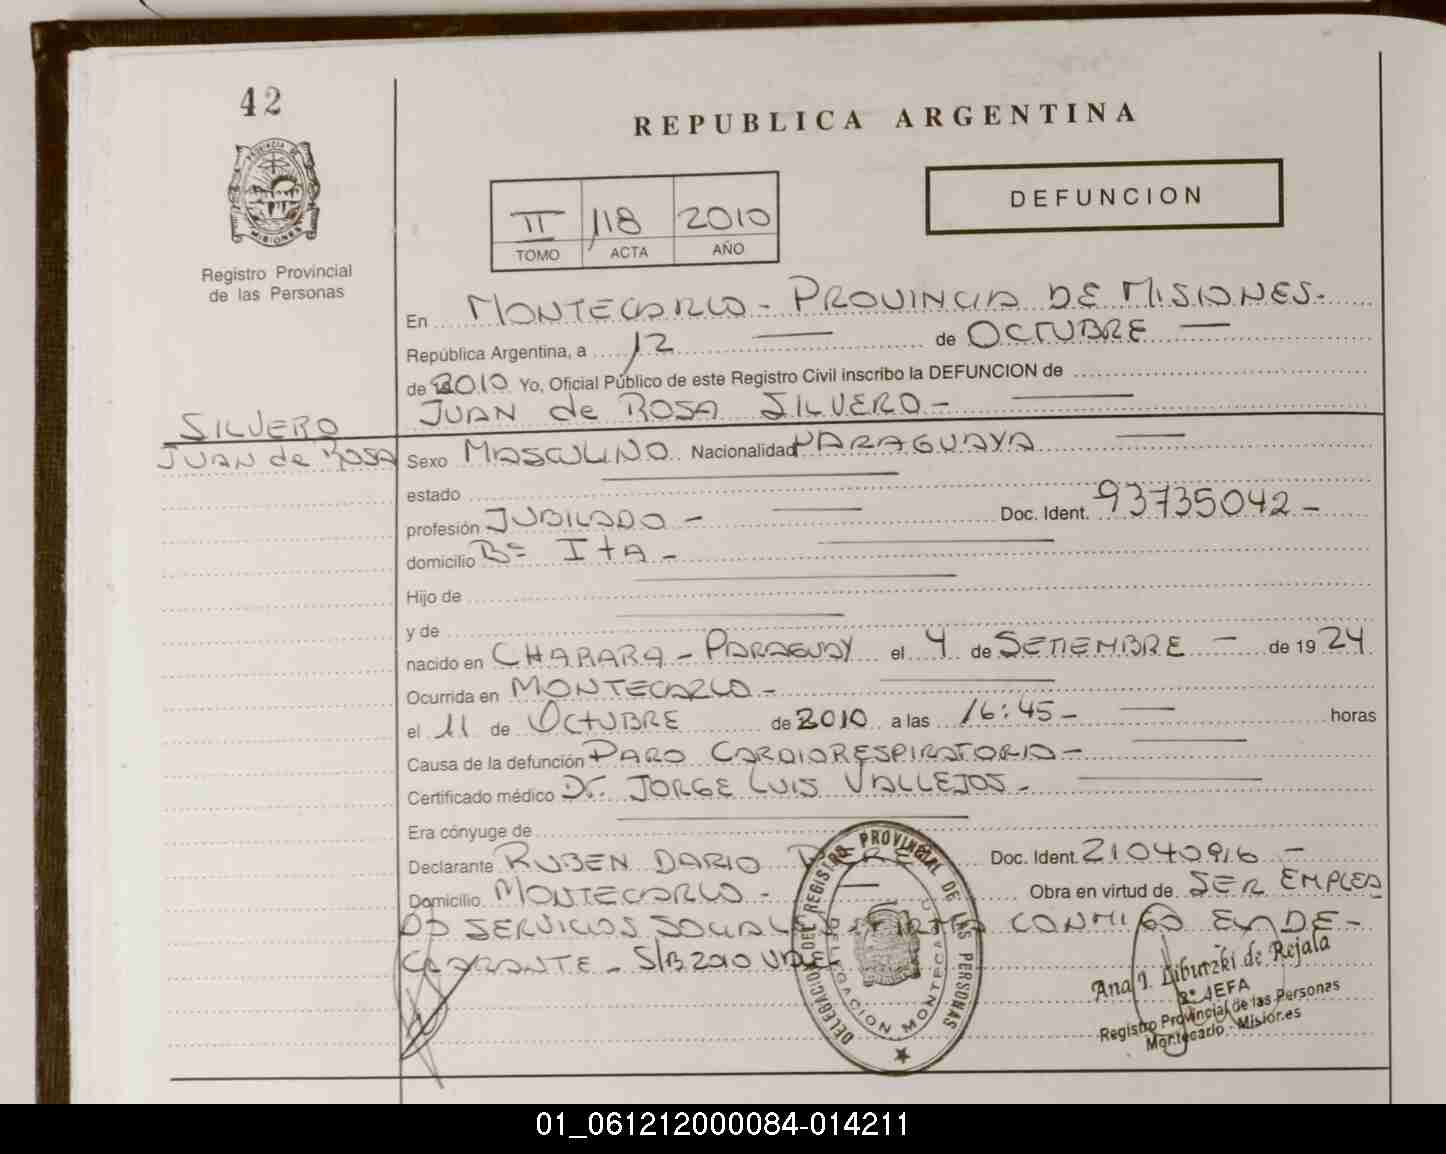 42
REPUBLICA ARGENTINA
PROVINCIA DE MISIONES
Registro Provincial
de las Personas
II 118 2010
TOMO ACTA AÑO
DEFUNCION
En MONTECARLO - PROVINCIA DE MISIONES -
República Argentina, a 12 de OCTUBRE
de 2010 Yo, Oficial Público de este Registro Civil inscribo la DEFUNCION de
JUAN de ROSA SILVERO -
SILVERO
JUAN de ROSA
Sexo MASCULINO Nacionalidad PARAGUAYA
estado
profesión JUBILADO - Doc. Ident. 93735042 -
domicilio Bº ItA -
Hijo de
y de
nacido en CHARARA - PARAGUAY el 4 de SETIEMBRE - de 1924
Ocurrida en MONTECARLO -
el 11 de OCTUBRE de 2010 a las 16:45 - horas
Causa de la defunción PARO CARDIORESPIRATORIO -
Certificado médico Dr. JORGE LUIS VALLEJOS -
Era cónyuge de
Declarante RUBEN DARIO Doc. Ident. 21040916 -
Domicilio MONTECARLO - Obra en virtud de SER EMPLEA
DO SERVICIOS SOCIALES FIRMA CONMIGO EL DE-
CLARANTE - S/B 2010 VALE
DELEGACION DEL REGISTRO PROVINCIAL DE LAS PERSONAS
DELEGACION MONTECARLO
Ana I. Liburzki de Rejala
2ª JEFA
Registro Provincial de las Personas
Montecarlo - Misiones
01_061212000084-014211